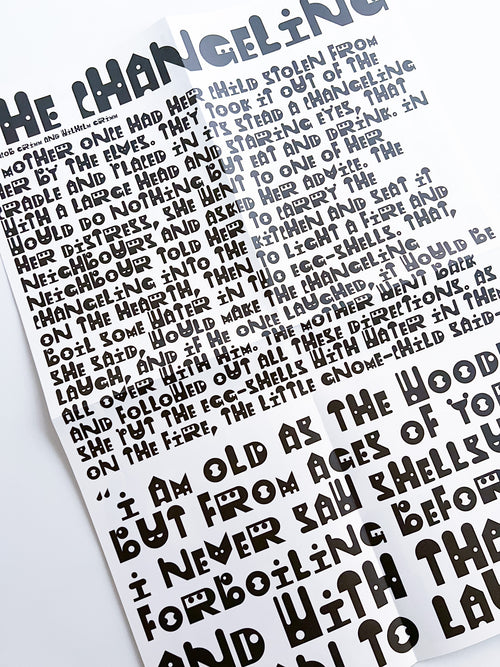 HE CHANGELING
COB GRIMM AND WILHELM GRIMM
MOTHER ONCE HAD HER CHILD STOLEN FROM
HER BY THE ELVES. THEY TOOK IT OUT OF THE
CRADLE AND PLACED IN ITS STEAD A CHANGELING
WITH A LARGE HEAD AND STARING EYES, THAT
WOULD DO NOTHING BUT EAT AND DRINK. IN
HER DISTRESS, SHE WENT TO ONE OF HER
NEIGHBOURS AND ASKED HER ADVICE. THE
NEIGHBOUR TOLD HER TO CARRY THE
CHANGELING INTO THE KITCHEN AND SEAT IT
ON THE HEARTH, THEN TO LIGHT A FIRE AND
BOIL SOME WATER IN TH EGG-SHELLS. THAT,
SHE SAID, WOULD MAKE THE CHANGELING
LAUGH, AND IF HE ONCE LAUGHED, IT WOULD BE
ALL OVER WITH HIM. THE MOTHER WENT BACK
AND FOLLOWED OUT ALL THESE DIRECTIONS. AS
SHE PUT THE EGG-SHELLS WITH WATER IN THEM
ON THE FIRE, THE LITTLE GNOME-CHILD SAID:
"I AM OLD AS THE WOOD
BUT FROM AGES OF YO
I NEVER SAW SHELLSU
FORBOILING BEFOR
AND WITH THA
AN TO LAU